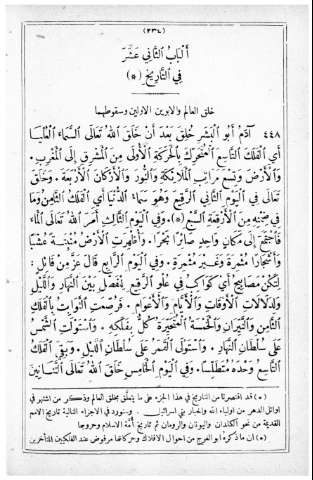 (٢٣٤)
أَلْبَابُ الثَّانِي عَشَرَ
فِي التَّارِيخِ (*)
خلق العالم والابوين الاولين وسقوطهما
٤٤٨ آدَمُ أَبُو الْبَشَرِ خُلِقَ بَعْدَ أَنْ خَلَقَ اللهُ تَعَالَى السَّمَاءَ الْعُلْيَا
أَيِ الْفَلَكَ التَّاسِعَ الْمُتَحَرِّكَ بِالْحَرَكَةِ الْأُولَى مِنَ الْمَشْرِقِ إِلَى الْمَغْرِبِ.
وَالْأَرْضَ وَتِسْعَ مَرَاتِبِ الْمَلَائِكَةِ وَالنُّورَ وَالْأَرْكَانَ الْأَرْبَعَةَ. وَخَلَقَ
تَعَالَى فِي الْيَوْمِ الثَّانِي الرَّقِيعَ وَهُوَ سَمَاءُ الدُّنْيَا أَيِ الْفَلَكُ الثَّامِنُ وَمَا
فِي ضِمْنِهِ مِنَ الْأَرْقِعَةِ السَّبْعِ (*). وَفِي الْيَوْمِ الثَّالِثِ أَمَرَ اللهُ تَعَالَى الْمَاءَ
فَاجْتَمَعَ إِلَى مَكَانٍ وَاحِدٍ صَائِرًا بَحْرًا. وَأَظْهَرَتِ الْأَرْضُ مُنْبِتَةً عُشْبًا
وَأَشْجَارًا مُثْمِرَةً وَغَيْرَ مُثْمِرَةٍ. وَفِي الْيَوْمِ الرَّابِعِ قَالَ عَزَّ مِنْ قَائِلٍ:
لِتَكُنْ مَصَابِيحُ أَيْ كَوَاكِبُ فِي عُلُوِّ الرَّقِيعِ لِتَفْصِلَ بَيْنَ النَّهَارِ وَاللَّيْلِ
وَلِدَلَالَاتِ الْأَوْقَاتِ وَالْأَيَّامِ وَالْأَعْوَامِ. فَرُصِّعَتِ الثَّوَابِتُ بِالْفَلَكِ
الثَّامِنِ وَالنَّيِّرَانِ وَالْخَمْسَةُ الْمُتَحَيِّرَةُ كُلٌّ بِفَلَكِهِ. وَاسْتَوْلَتِ الشَّمْسُ
عَلَى سُلْطَانِ النَّهَارِ. وَاسْتَوْلَى الْقَمَرُ عَلَى سُلْطَانِ اللَّيْلِ. وَبَقِيَ الْفَلَكُ
التَّاسِعُ وَحْدَهُ مُتَطَلِّسًا. وَفِي الْيَوْمِ الْخَامِسِ خَلَقَ اللهُ تَعَالَى التَّنَانِينَ
(*) قد اقتصرنا من التاريخ في هذا الجزء على ما يتعلق بخلق العالم وذكر من اشتهر في
اوائل الدهر من اولياء الله والجبار بني اسرائيل. وسنورد في الاجزاء التالية تاريخ الامم
القديمة من نحو الكلدان واليونان والرومان ثم تاريخ أُمَّة الاسلام وحروبها
(*) ان ما ذكره ابو الفرج من احوال الافلاك وحركاتها مرفوض عند الفلكيين المتأخرين